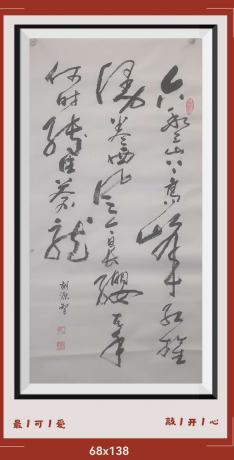 六盤山上高峰红旗
漫卷西风今日長纓在手
何时縛住蒼龍
最/可/爱
敲/开/心
68x138